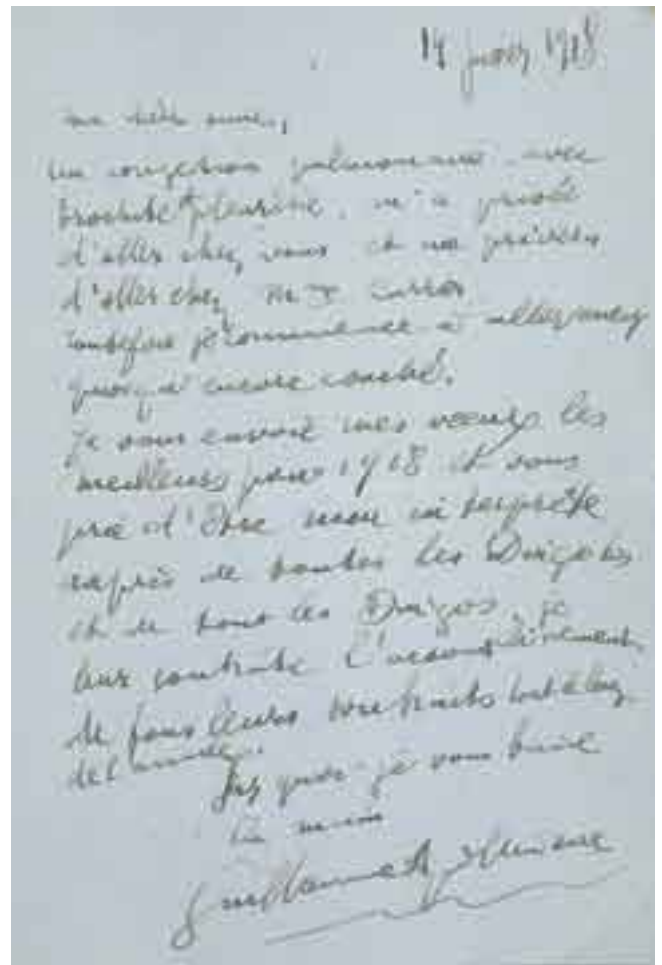 14 janvier 1918
ma chère amie,
une congestion pulmonaire avec
bronchite pleurésie, m'a privé
d'aller chez vous et me privera
d'aller chez Mme
toutefois je commence à aller mieux
quoiqu'encore couché.
Je vous envoie mes vœux les
meilleurs pour 1918 et vous
prie d'être mon interprète
auprès de toutes les
et de tous les je
leur souhaite l'accomplissement
de tous leurs souhaits tout le long
de l'année.
Sur quoi je vous baise
la main
Guillaume Apollinaire